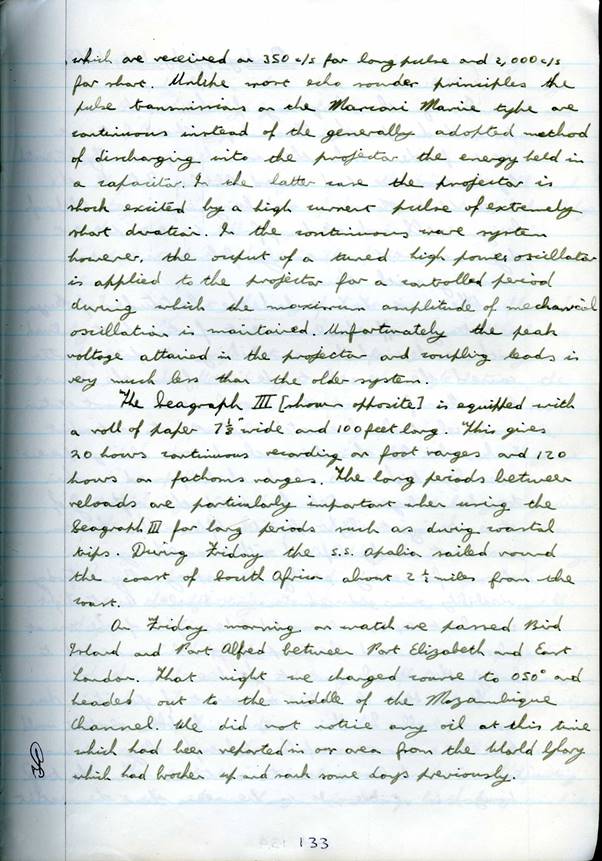 which are received on 350 c/s for long pulse and 2,000 c/s
for short. Unlike most echo sounder principles the
pulse transmissions on the Marconi Marine type are
continuous instead of the generally adopted method
of discharging into the projector the energy held in
a capacitor. In the latter case the projector is
shock excited by a high current pulse of extremely
short duration. In the continuous wave system
however, the output of a tuned high power oscillator
is applied to the projector for a controlled period
during which the maximum amplitude of mechanical
oscillation is maintained. Unfortunately the peak
voltage attained in the projector and coupling leads is
very much less than the older system.
The Seagraph III [shown opposite] is equipped with
a roll of paper wide and 100 feet long. This gives
20 hours continuous recording on foot ranges and 120
hours on fathoms ranges. The long periods between
reloads are particularly important when using the
Seagraph III for long periods such as during coastal
trips. During Friday the s.s. Opalia sailed round
the coast of South Africa about 2 ½ miles from the
coast.
On Friday morning on watch we passed Bird
Island and Port Alfred between Port Elizabeth and East
London. That night we changed course to 050° and
headed out to the middle of the Mozambique
Channel. We did not notice any oil at this time
which had been reported in our area from the World Glory
which had broken up and sunk some days previously.
133